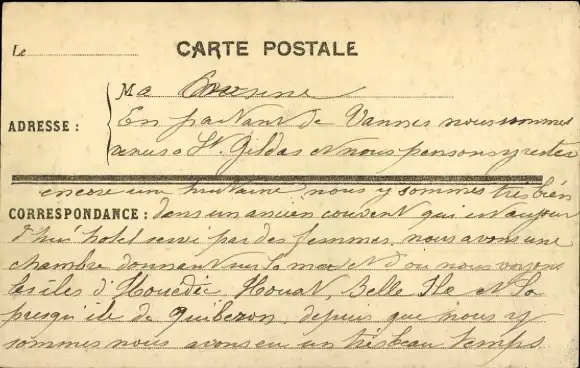 CARTE POSTALE
Le
Ma Cousine
ADRESSE :
En partant de Vannes nous sommes
venus a St Gildas et nous pensons y rester
encore une huitaine nous y sommes très bien
CORRESPONDANCE : dans un ancien couvent qui est aujour
d'hui hotel servi par des femmes, nous avons une
chambre donnant sur la mer et d'où nous voyons
les iles d'Houëdic, Houat, Belle Ile et la
presqu'ile de Quiberon, depuis que nous y
sommes nous avons eu un très beau temps